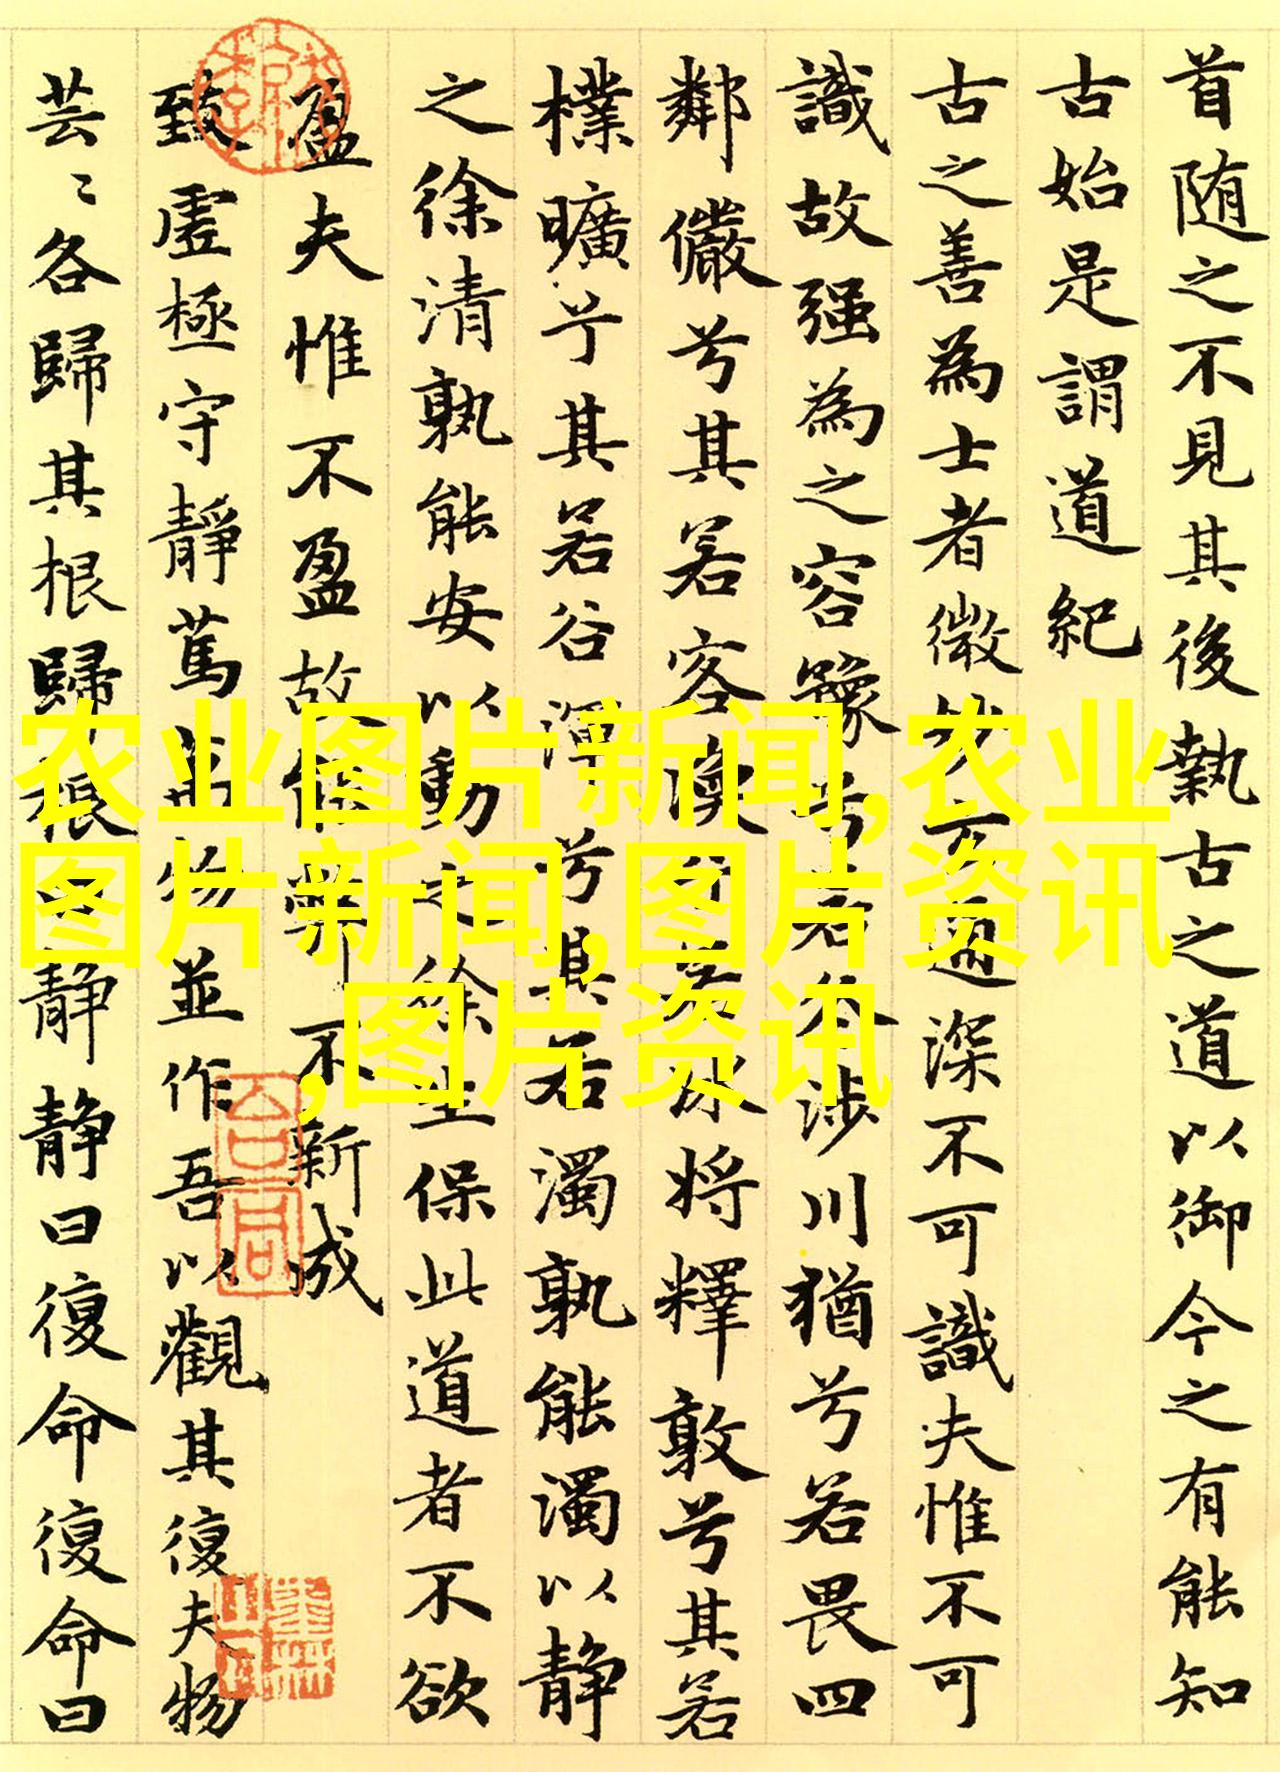 首随之不見其後執古之道以御今之有能知
古始是謂道紀
古之善為士者微妙玄通深不可識夫惟不可
識故强為之容豫兮若冬涉川猶兮若畏四
鄰儼兮其若客渙兮若冰將釋敦兮其若
樸曠兮其若谷渾兮其若濁孰能濁以静
之徐清孰能安以動之徐生保此道者不欲
盈夫惟不盈故能弊不新成
致虛極守靜篤萬物並作吾以觀其復夫物
芸〻各歸其根歸根曰静静曰復命復命曰
农业图片新闻,农业
图片新闻,图片资讯
,图片资讯